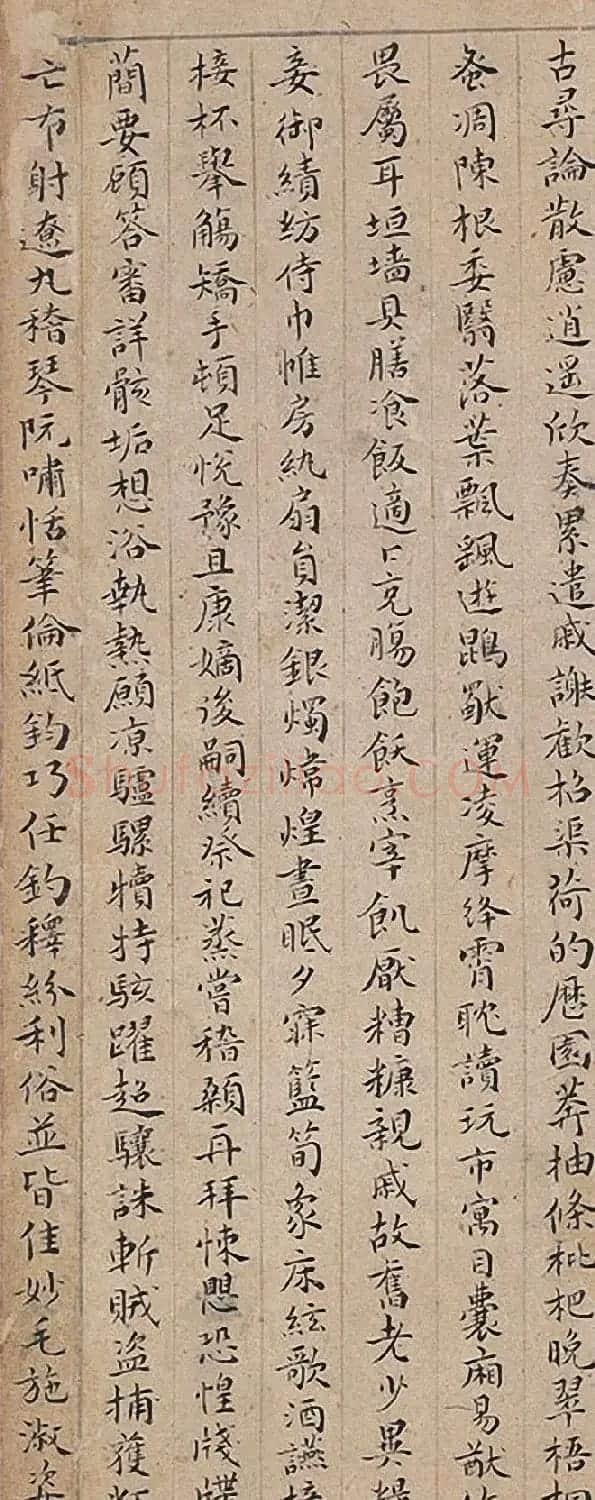 古尋論散慮逍遥欣奏累遣戚謝歡招渠荷的歷園莽抽條枇杷晚翠梧桐
蚤凋陳根委翳落葉飄飖遊鵾獨運凌摩絳霄耽讀玩市寓目囊廂易猷
畏屬耳垣墻具膳飡飯適口充腸飽飫烹宰飢厭糟糠親戚故舊老少異糧
妾御績紡侍巾帷房紈扇員潔銀燭煒煌晝眠夕寐籃筍象床絃歌酒讌接
椄杯舉觴矯手頓足悅豫且康嫡後嗣續祭祀蒸嘗稽顙再拜悚懼恐惶牋牒
蕳要顧答審詳骸垢想浴執熱願凉驢騾犢特駭躍超驤誅斬賊盗捕獲叛
亡布射遼丸嵇琴阮嘯恬筆倫紙鈞巧任釣釋紛利俗並皆佳妙毛施淑姿